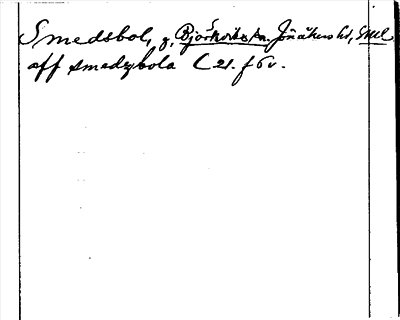 Smedsbol, g, Björkviks sn. Jönåkers hd, Sml
aff smedzbola C 21. f 6v.